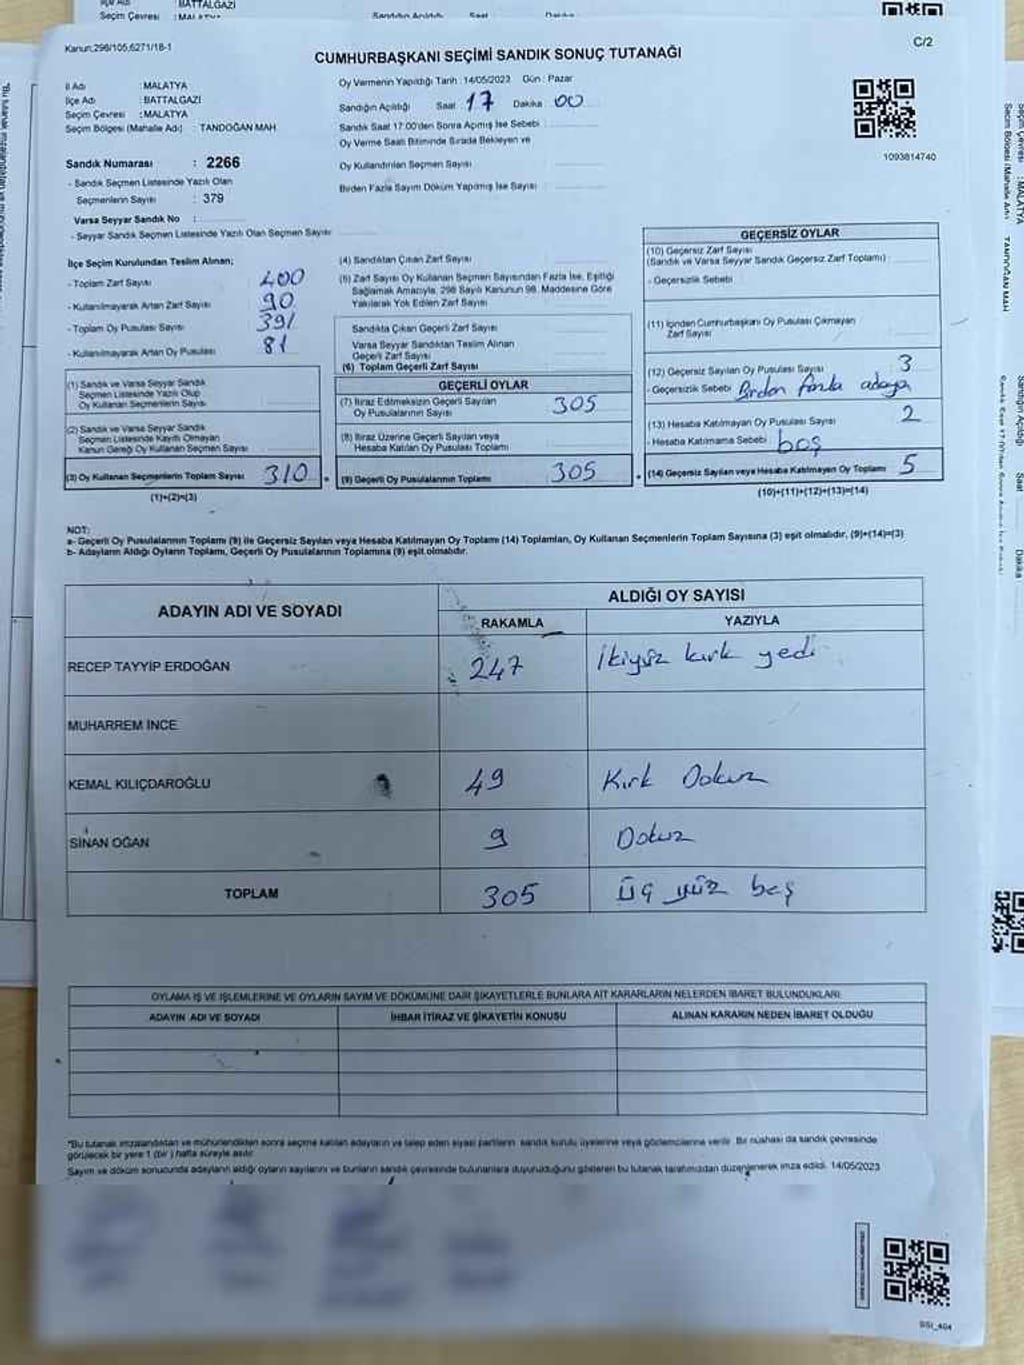 BATTALGAZİ
Seçim Çevresi : MALATYA
Sandığın Açıldığı Saat Dakika
Kanun:298/105,6271/18-1
C/2
CUMHURBAŞKANI SEÇİMİ SANDIK SONUÇ TUTANAĞI
İl Adı : MALATYA
İlçe Adı : BATTALGAZİ
Seçim Çevresi : MALATYA
Seçim Bölgesi (Mahalle Adı) : TANDOĞAN MAH
Oy Vermenin Yapıldığı Tarih : 14/05/2023 Gün : Pazar
Sandığın Açıldığı Saat 17 Dakika 00
Sandık Saat 17:00'den Sonra Açımış İse Sebebi
Oy Verme Saati Bitiminde Sırada Bekleyen ve
Oy Kullandırılan Seçmen Sayısı
Birden Fazla Sayım Döküm Yapılmış İse Sayısı
1093814740
Sandık Numarası : 2266
- Sandık Seçmen Listesinde Yazılı Olan
Seçmenlerin Sayısı : 379
Varsa Seyyar Sandık No :
- Seyyar Sandık Seçmen Listesinde Yazılı Olan Seçmen Sayısı
İlçe Seçim Kurulundan Teslim Alınan;
- Toplam Zarf Sayısı 400
- Kullanılmayarak Artan Zarf Sayısı 90
- Toplam Oy Pusulası Sayısı 391
- Kullanılmayarak Artan Oy Pusulası 81
(1) Sandık ve Varsa Seyyar Sandık
Seçmen Listesinde Yazılı Olup
Oy Kullanan Seçmenlerin Sayısı
(2) Sandık ve Varsa Seyyar Sandık
Seçmen Listesinde Kayıtlı Olmayan
Kanun Gereği Oy Kullanan Seçmen Sayısı
(3) Oy Kullanan Seçmenlerin Toplam Sayısı 310
(1)+(2)=(3)
(4) Sandıktan Çıkan Zarf Sayısı
(5) Zarf Sayısı Oy Kullanan Seçmen Sayısından Fazla İse, Eşitliği
Sağlamak Amacıyla, 298 Sayılı Kanunun 98. Maddesine Göre
Yakılarak Yok Edilen Zarf Sayısı
Sandıkta Çıkan Geçerli Zarf Sayısı
Varsa Seyyar Sandıktan Teslim Alınan
Geçerli Zarf Sayısı
(6) Toplam Geçerli Zarf Sayısı
GEÇERLİ OYLAR
(7) İtiraz Edilmeksizin Geçerli Sayılan
Oy Pusulalarının Sayısı 305
(8) İtiraz Üzerine Geçerli Sayılan veya
Hesaba Katılan Oy Pusulası Toplamı
(9) Geçerli Oy Pusulalarının Toplamı 305
GEÇERSİZ OYLAR
(10) Geçersiz Zarf Sayısı
(Sandık ve Varsa Seyyar Sandık Geçersiz Zarf Toplamı)
- Geçersizlik Sebebi
(11) İçinden Cumhurbaşkanı Oy Pusulası Çıkmayan
Zarf Sayısı
(12) Geçersiz Sayılan Oy Pusulası Sayısı 3
- Geçersizlik Sebebi Birden fazla adaya
(13) Hesaba Katılmayan Oy Pusulası Sayısı 2
- Hesaba Katılmama Sebebi boş
(14) Geçersiz Sayılan veya Hesaba Katılmayan Oy Toplamı 5
(10)+(11)+(12)+(13)=(14)
NOT:
a- Geçerli Oy Pusulalarının Toplamı (9) ile Geçersiz Sayılan veya Hesaba Katılmayan Oy Toplamı (14) Toplamları, Oy Kullanan Seçmenlerin Toplam Sayısına (3) eşit olmalıdır, (9)+(14)=(3)
b- Adayların Aldığı Oyların Toplamı, Geçerli Oy Pusulalarının Toplamına (9) eşit olmalıdır.
ADAYIN ADI VE SOYADI
ALDIĞI OY SAYISI
RAKAMLA YAZIYLA
RECEP TAYYİP ERDOĞAN 247 İkiyüz kırk yedi
MUHARREM İNCE
KEMAL KILIÇDAROĞLU 49 Kırk Dokuz
SİNAN OĞAN 9 Dokuz
TOPLAM 305 Üç yüz beş
OYLAMA İŞ VE İŞLEMLERİNE VE OYLARIN SAYIM VE DÖKÜMÜNE DAİR ŞİKAYETLERLE BUNLARA AİT KARARLARIN NELERDEN İBARET BULUNDUKLARI
ADAYIN ADI VE SOYADI İHBAR İTİRAZ VE ŞİKAYETİN KONUSU ALINAN KARARIN NEDEN İBARET OLDUĞU
*Bu tutanak imzalandıktan ve mühürlendikten sonra seçime katılan adayların ve talep eden siyasi partilerin sandık kurulu üyelerine veya gözlemcilerine verilir. Bir nüshası da sandık çevresinde
görülecek bir yere 1 (bir) hafta süreyle asılır.
Sayım ve döküm sonucunda adayların aldığı oyların sayılarını ve bunların sandık çevresinde bulunanlara duyurulduğunu gösteren bu tutanak tarafımızdan düzenlenerek imza edildi. 14/05/2023
SSI_404